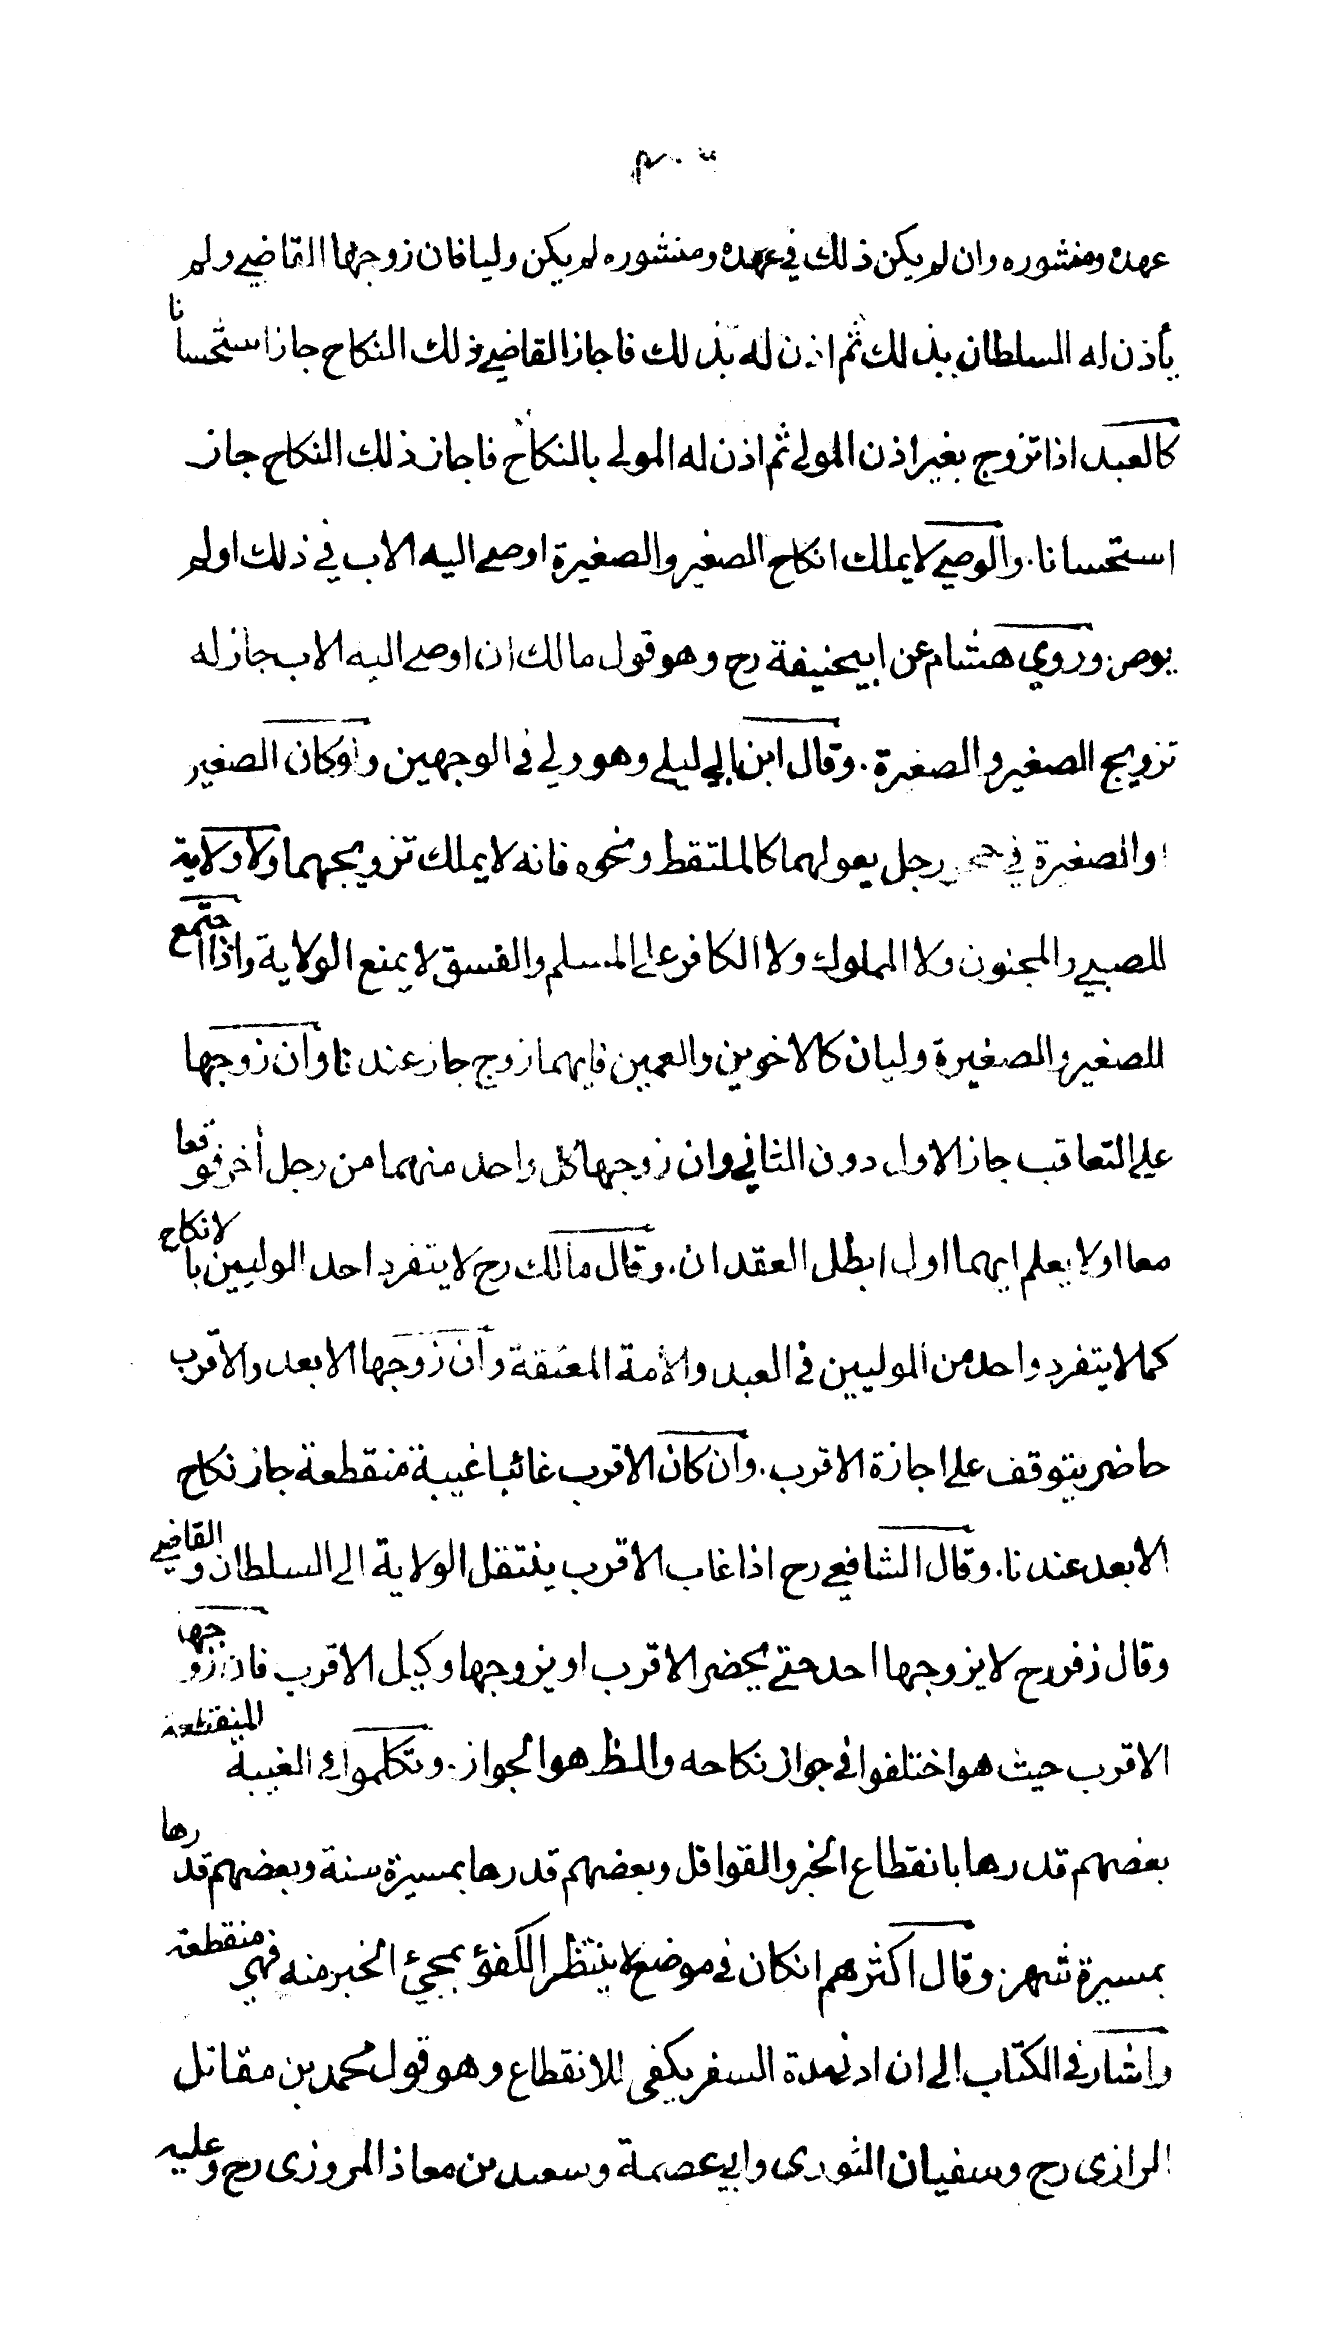 عهده ومنشوره وان لم يكن ذلك في عهده ومنشوره لم يكن وليا فان زوجها القاضي ولم
يأذن له السلطان بذلك ثم اذن له بذلك فاجاز القاضي ذلك النكاح جاز استحسانا
كالعبد اذا تزوج بغير اذن المولى ثم اذن له المولى بالنكاح فاجاز ذلك النكاح جاز
استحسانا. والوصي لا يملك انكاح الصغير والصغيرة اوصى اليه الاب في ذلك او لم
يوص. وروي هشام عن ابيحنيفة رح وهو قول مالك ان اوصى اليه الاب جاز له
تزويج الصغير والصغيرة. وقال ابن ابي ليلى وهو ولي في الوجهين ولوكان الصغير
او الصغيرة في حجر رجل يعولهما كالملتقط ونحوه فانه لا يملك تزويجهما ولا ولاية
للصبي والمجنون ولا المملوك ولا الكافر على المسلم والفسق لا يمنع الولاية واذا اجتمع
للصغير والصغيرة وليان كالاخوين والعمين فايهما زوج جاز عندنا وان زوجها
على التعاقب جاز الاول دون الثاني وان زوجها كل واحد منهما من رجل أخر فوقعا
معا اولا يعلم ايهما اول ابطل العقدان. وقال مالك رح لا يتفرد احد الوليين بالانكاح
كما لا يتفرد واحد من الموليين في العبد والأمة المعتقة وان زوجها الابعد والاقرب
حاضر يتوقف على اجازة الاقرب. وان كان الاقرب غائبا غيبة منقطعة جاز نكاح
الابعد عندنا. وقال الشافعي رح اذا غاب الاقرب ينتقل الولاية الى السلطان والقاضي
وقال زفر رح لا يزوجها احد حتى يحضر الاقرب او يزوجها وكيل الاقرب فان زوجها
الاقرب حيث هو اختلفوا في جواز نكاحه والظ هو الجواز. وتكلموا في الغيبة المنقطعة
بعضهم قدرها بانقطاع الخبر والقوافل وبعضهم قدرها بمسيرة سنة وبعضهم قدرها
بمسيرة شهر. وقال اكثرهم انكان في موضع لا ينتظر الكفؤ بمجيئ الخبر منه فهي منقطعة
واشار في الكتاب الى ان ادنى مدة السفر يكفى للانقطاع وهو قول محمد بن مقاتل
الرازى رح وسفيان الثورى وابي عصمة وسعيد بن معاذ المروزى رح وعليه